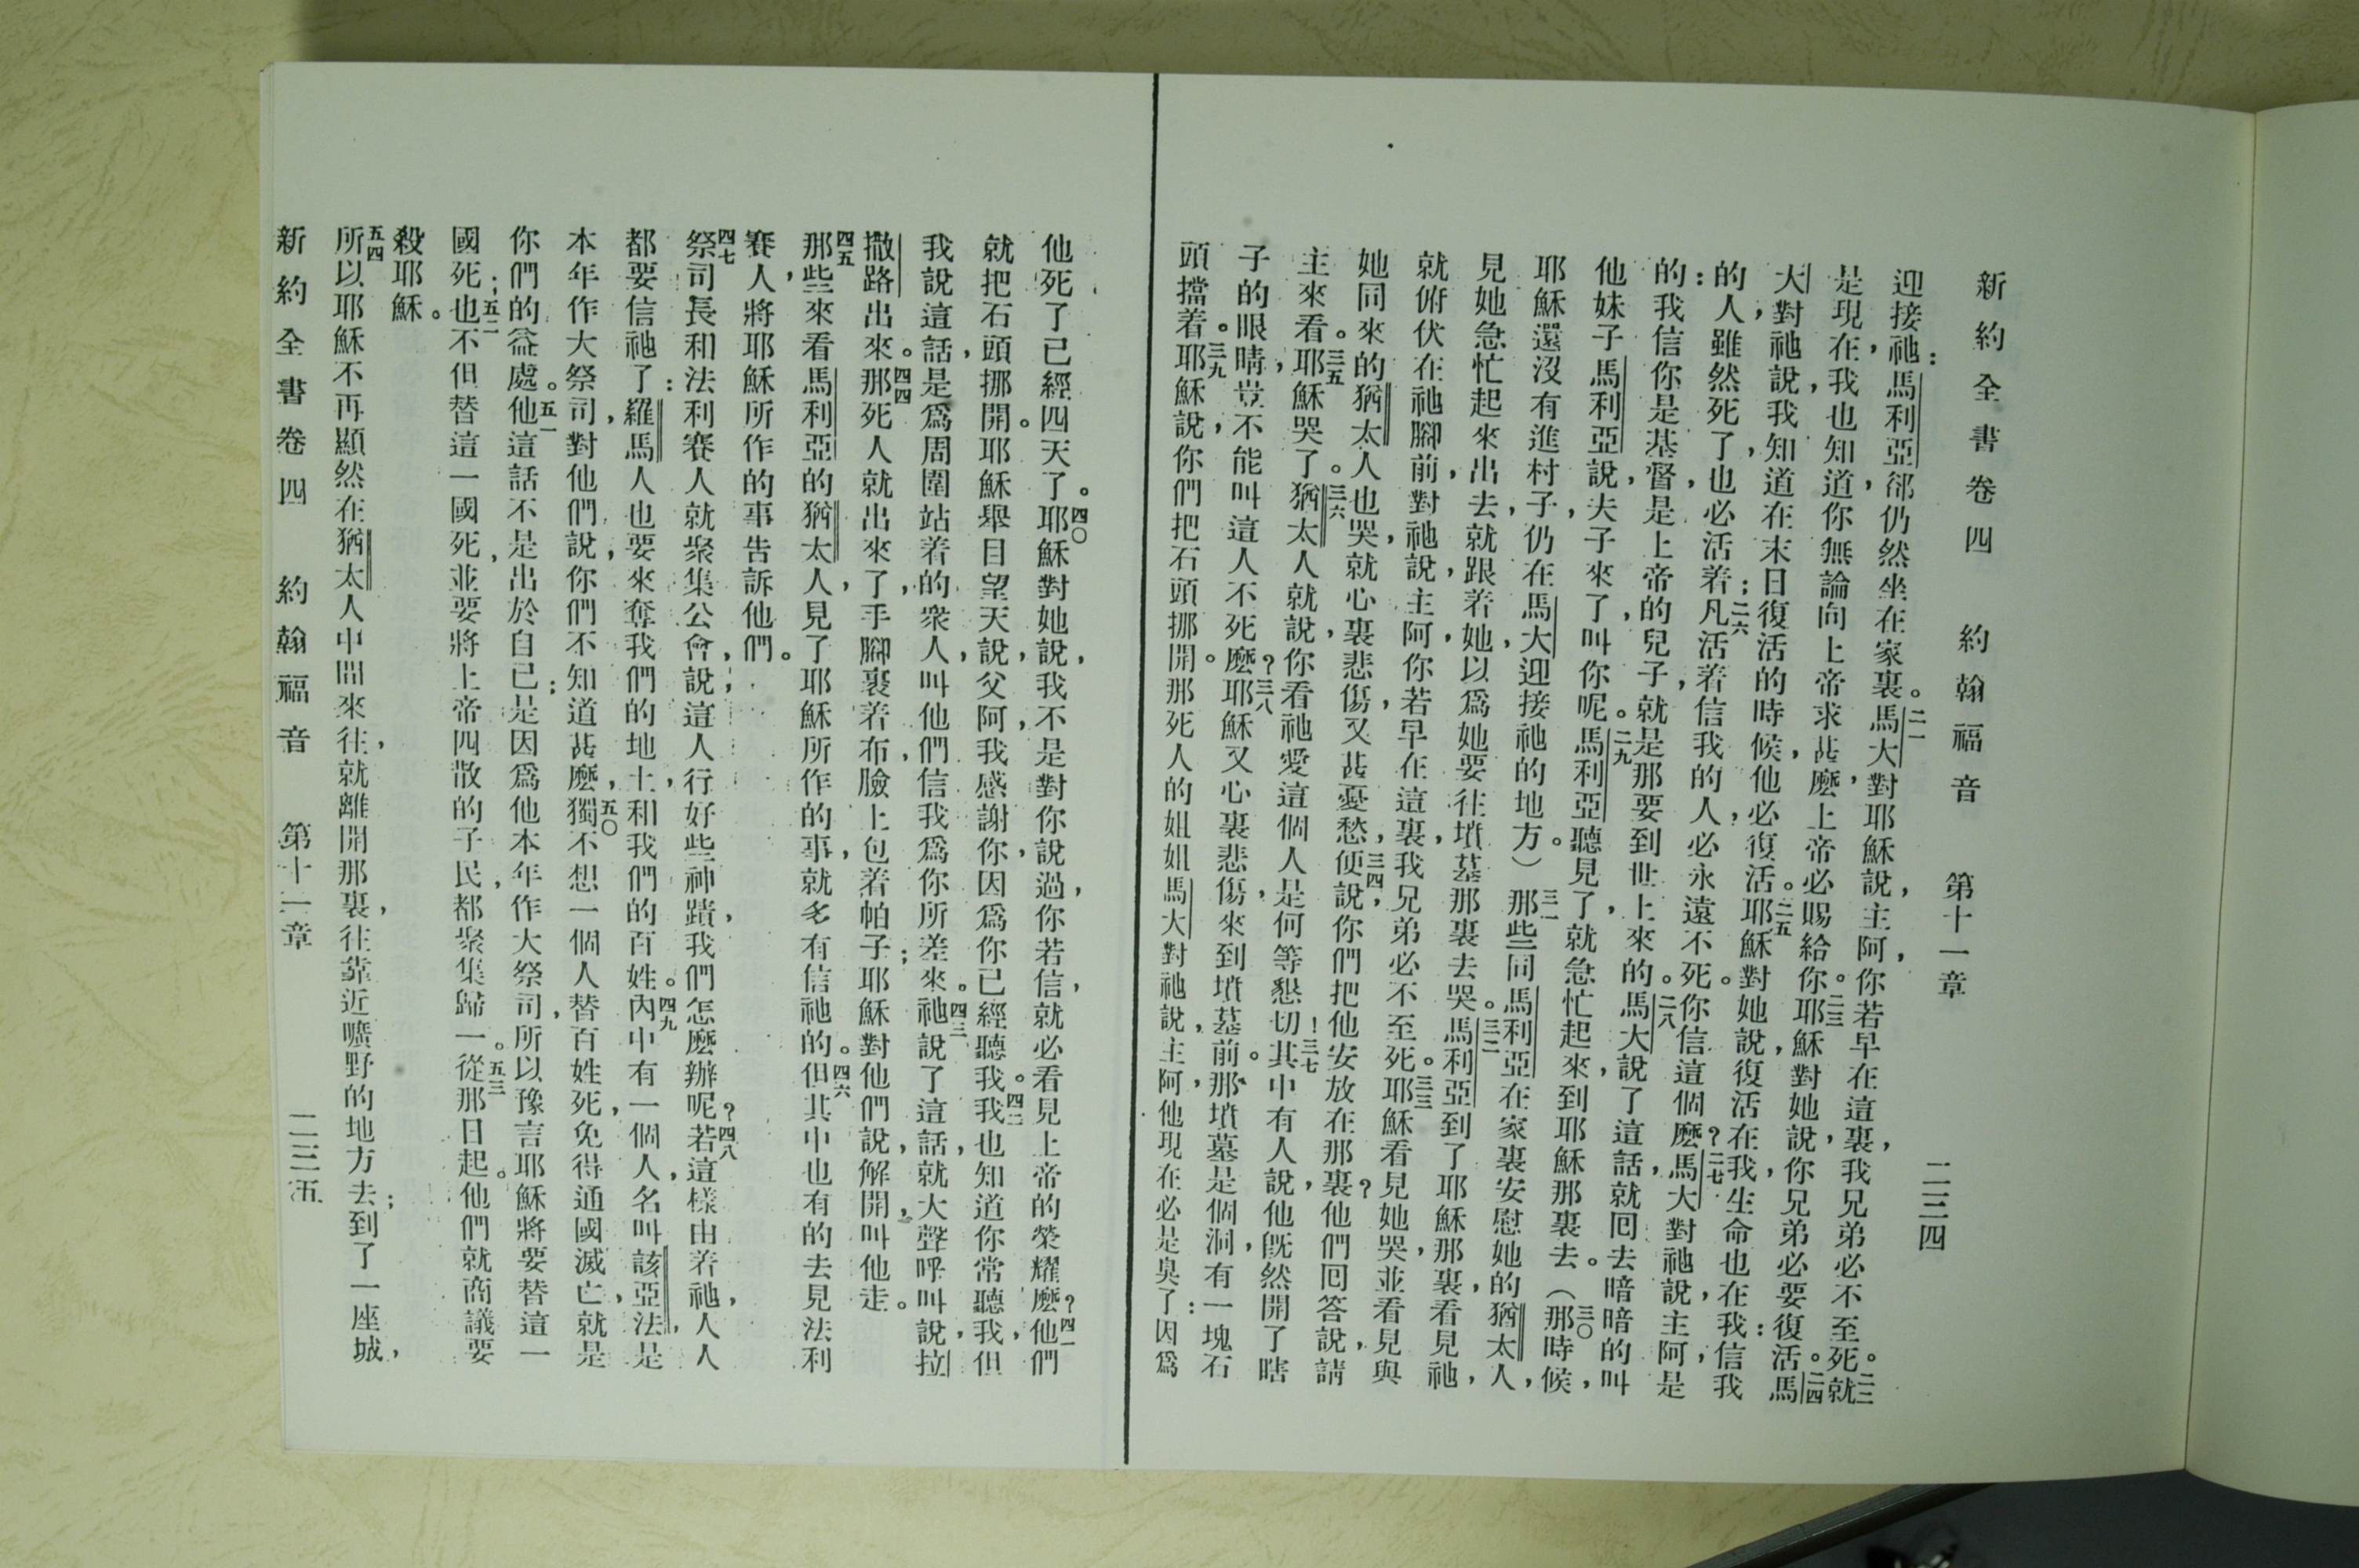 新約全書卷四 約翰福音 第十一章 二三四
迎接祂：馬利亞卻仍然坐在家裏。二一馬大對耶穌說，主阿，你若早在這裏，我兄弟必不至死。二二就
是現在，我也知道，你無論向上帝求甚麼，上帝必賜給你。二三耶穌對她說，你兄弟必要復活。二四馬
大對祂說，我知道在末日復活的時候，他必復活。二五耶穌對她說，復活在我，生命也在我：信我
的人，雖然死了，也必活着；二六凡活着信我的人，必永遠不死。你信這個麼？二七馬大對祂說，主阿，是
的：我信你是基督，是上帝的兒子，就是那要到世上來的。二八馬大說了這話，就回去暗暗的叫
他妹子馬利亞說，夫子來了，叫你呢。二九馬利亞聽見了，就急忙起來，到耶穌那裏去。（三〇那時候，
耶穌還沒有進村子，仍在馬大迎接祂的地方。）三一那些同馬利亞在家裏安慰她的猶太人，
見她急忙起來出去，就跟着她，以爲她要往墳墓那裏去哭。三二馬利亞到了耶穌那裏，看見祂，
就俯伏在祂腳前，對祂說，主阿，你若早在這裏，我兄弟必不至死。三三耶穌看見她哭，並看見與
她同來的猶太人也哭，就心裏悲傷，又甚憂愁，三四便說，你們把他安放在那裏？他們回答說，請
主來看。三五耶穌哭了。三六猶太人就說，你看祂愛這個人是何等懇切！三七其中有人說，他旣然開了瞎
子的眼睛，豈不能叫這人不死麼？三八耶穌又心裏悲傷，來到墳墓前。那墳墓是個洞，有一塊石
頭擋着。三九耶穌說，你們把石頭挪開。那死人的姐姐馬大對祂說，主阿，他現在必是臭了：因爲
他死了已經四天了。四〇耶穌對她說，我不是對你說過，你若信，就必看見上帝的榮耀麼？四一他們
就把石頭挪開。耶穌舉目望天說，父阿，我感謝你，因爲你已經聽我。四二我也知道你常聽我，但
我說這話，是爲周圍站着的衆人，叫他們信我爲你所差來。四三祂說了這話，就大聲呼叫說，拉
撒路出來。四四那死人就出來了，手腳裹着布，臉上包着帕子；耶穌對他們說，解開，叫他走。
四五那些來看馬利亞的猶太人，見了耶穌所作的事，就多有信祂的。四六但其中也有的去見法利
賽人，將耶穌所作的事告訴他們。
四七祭司長和法利賽人就聚集公會，說，這人行好些神蹟，我們怎麼辦呢？四八若這樣由着祂，人人
都要信祂了：羅馬人也要來奪我們的地土，和我們的百姓。四九內中有一個人，名叫該亞法，是
本年作大祭司，對他們說，你們不知道甚麼，五〇獨不想一個人替百姓死，免得通國滅亡，就是
你們的益處。五一他這話不是出於自己：是因爲他本年作大祭司，所以豫言耶穌將要替這一
國死；五二也不但替這一國死，並要將上帝四散的子民，都聚集歸一。五三從那日起。他們就商議要
殺耶穌。
五四所以耶穌不再顯然在猶太人中間來往，就離開那裏，往靠近曠野的地方去；到了一座城，
新約全書卷四 約翰福音 第十一章 二三五